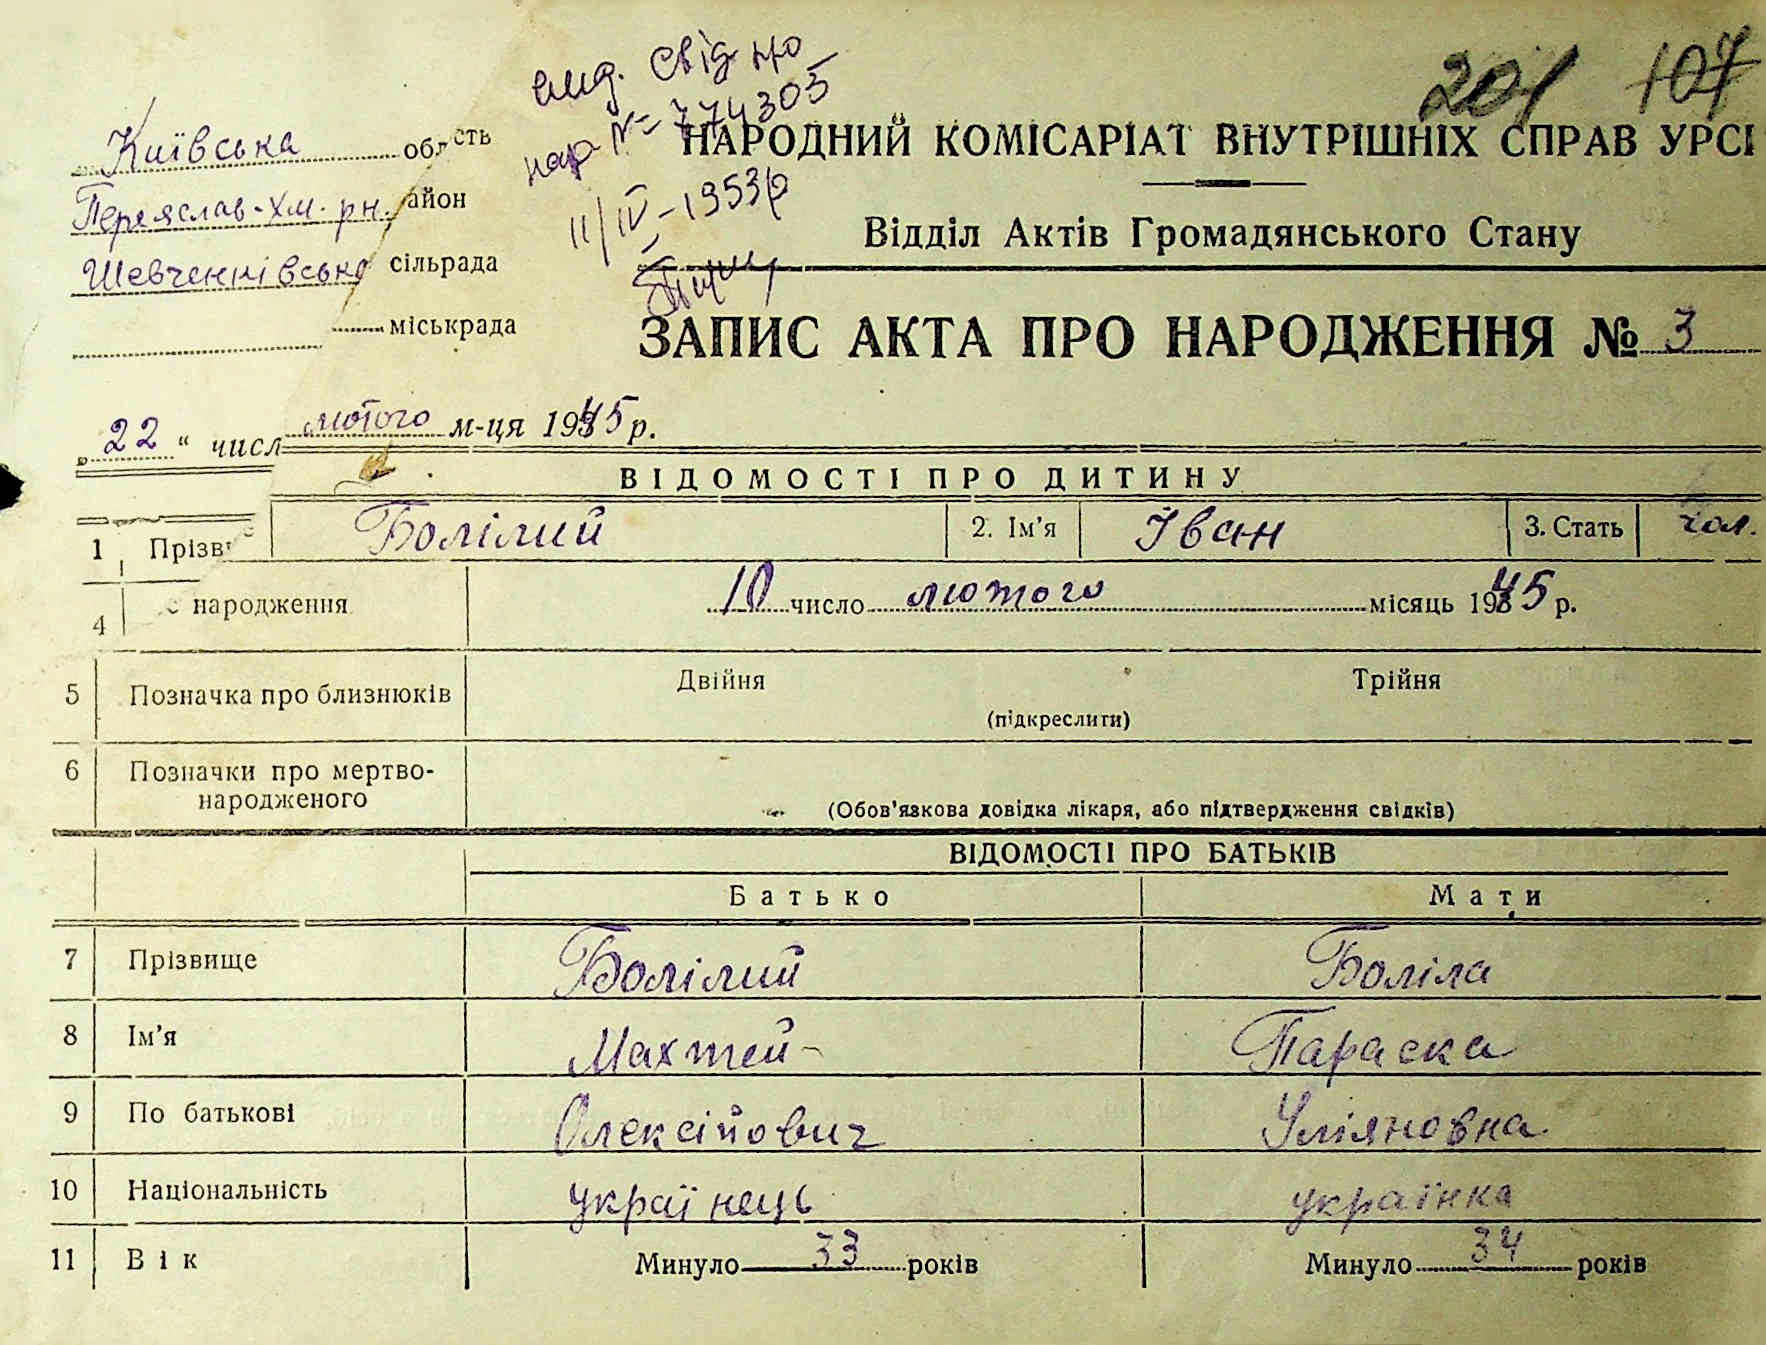 201 107
вид. свід про
нар № 774305
11/IV-1953р
Київська область
Переяслав-Хм. рн. район
Шевченківська сільрада
міськрада
НАРОДНИЙ КОМІСАРІАТ ВНУТРІШНІХ СПРАВ УРСР
Відділ Актів Громадянського Стану
ЗАПИС АКТА ПРО НАРОДЖЕННЯ № 3
„22“ числ лютого м-ця 1945 р.
ВІДОМОСТІ ПРО ДИТИНУ
1 Прізв Болілий 2. Ім'я Іван 3. Стать чол.
4 с народження 10 число лютого місяць 1945 р.
5 Позначка про близнюків Двійня Трійня
(підкреслити)
6 Позначки про мертво-
народженого
(Обов'язкова довідка лікаря, або підтвердження свідків)
ВІДОМОСТІ ПРО БАТЬКІВ
Батько Мати
7 Прізвище Болілий Боліла
8 Ім'я Махтей Параска
9 По батькові Олексійович Уліяновна
10 Національність українець українка
11 Вік Минуло 33 років Минуло 34 років